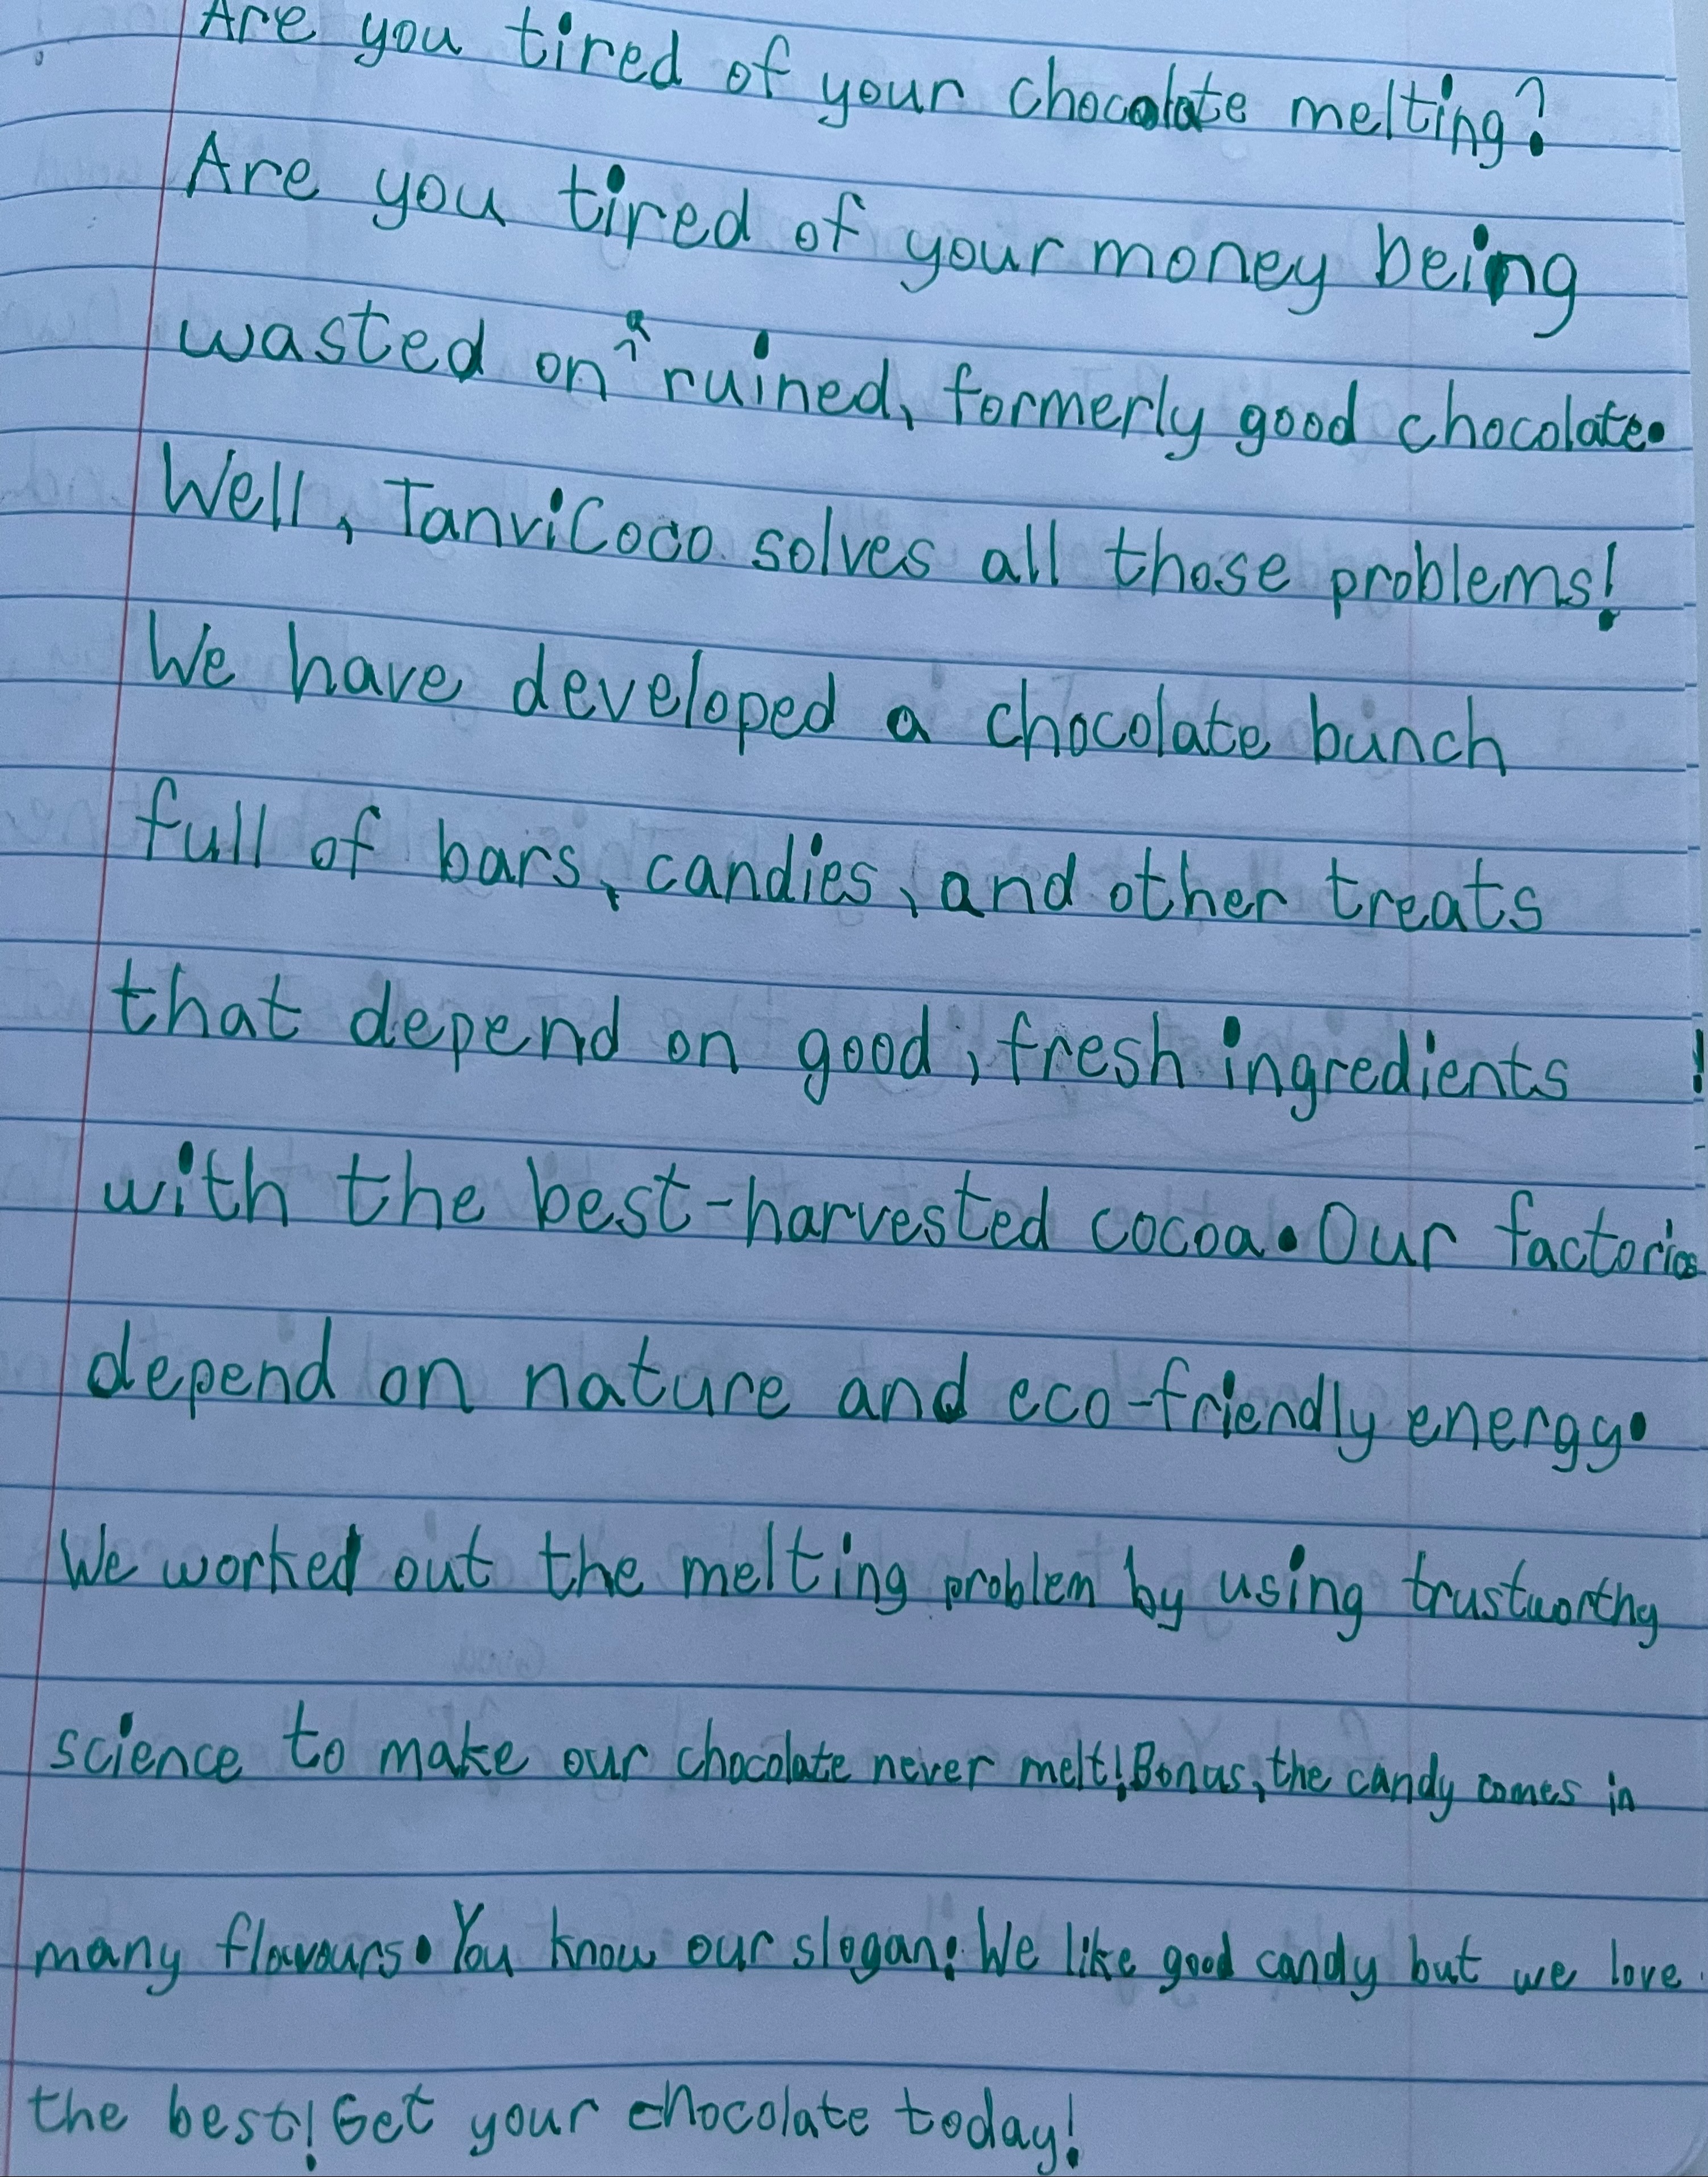 Are you tired of your chocolate melting?
Are you tired of your money being
wasted on a ruined, formerly good chocolate.
Well, TanviCoco solves all those problems!
We have developed a chocolate bunch
full of bars, candies, and other treats
that depend on good, fresh ingredients
with the best-harvested cocoa. Our factories
depend on nature and eco-friendly energy.
We worked out the melting problem by using trustworthy
science to make our chocolate never melt! Bonus, the candy comes in
many flavours. You know our slogan: We like good candy but we love
the best! Get your chocolate today!